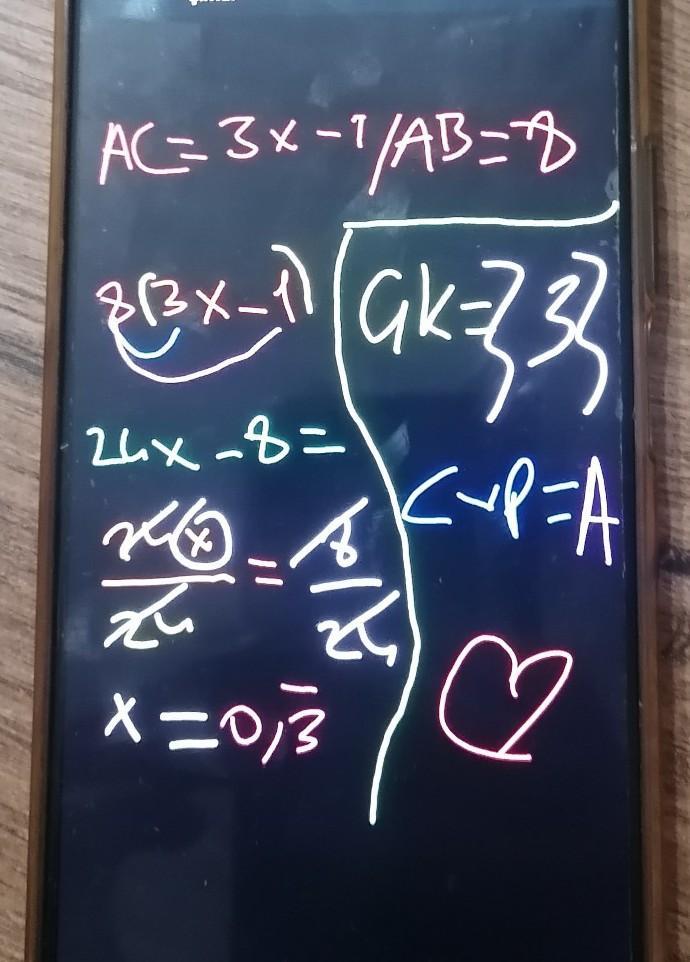 AC=3x-1/AB=8
8(3x-1)
24x-8=
24x/24 = 8/24
x=0,3̅
ÇK={3}
Cvp=A